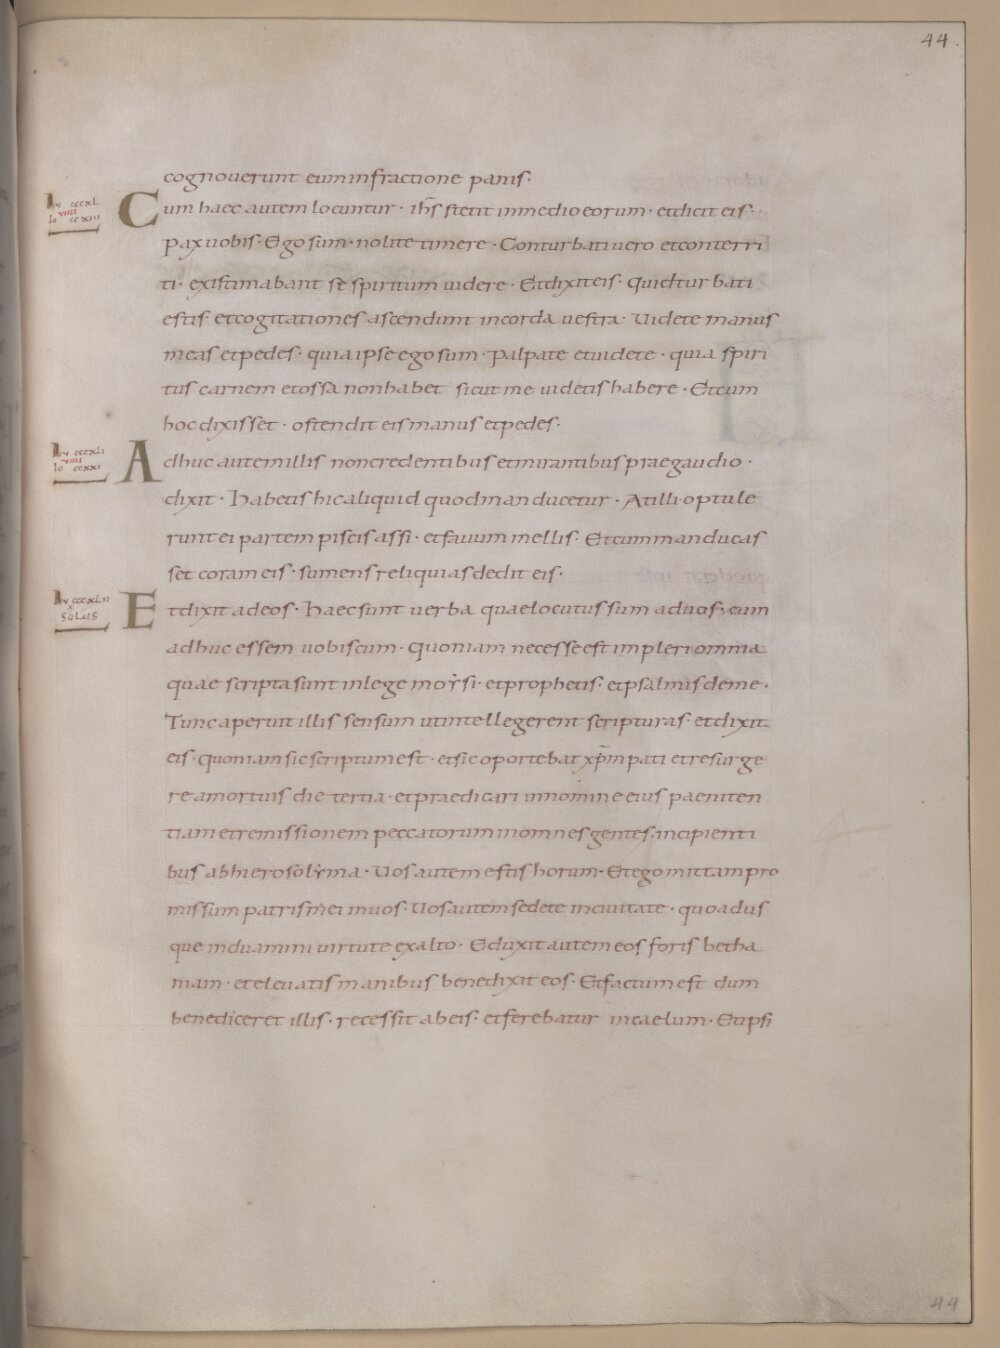 44.
cognouerunt eum in fractione panis·
Lu cccxl
viiii
Io ccxiii
Cum haec autem locuntur· ih̅s stetit in medio eorum· et dicit eis·
pax uobis· Ego sum· nolite timere· Conturbati uero et conterri
ti· existimabant se spiritum uidere· Et dixit eis· quid turbati
estis· et cogitationes ascendunt in corda uestra· Uidete manus
meas et pedes· quia ipse ego sum· palpate et uidete· quia spiri
tus carnem et ossa non habet sicut me uidetis habere· Et cum
hoc dixisset· ostendit eis manus et pedes·
Lu cccxli
viiii
Io ccxxi
Adhuc autem illis non credentibus et mirantibus prae gaudio·
dixit· Habetis hic aliquid quod manducetur· At illi optule
runt ei partem piscis assi· et fauum mellis· Et cum manducas
set coram eis· sumens reliquias dedit eis·
Lu cccxlii
x
Solus
Et dixit ad eos· Haec sunt uerba quae locutus sum ad uos· cum
adhuc essem uobiscum· quoniam necesse est impleri omnia
quae scripta sunt in lege moysi· et prophetis· et psalmis de me·
Tunc aperuit illis sensum ut intellegerent scripturas· et dixit
eis· quoniam sic scriptum est· et sic oportebat xp̅m pati et resurge
re a mortuis die tertia· et praedicari in nomine eius paeniten
tiam et remissionem peccatorum in omnes gentes· incipienti
bus ab hierosolyma· Uos autem estis horum· Et ego mittam pro
missum patris mei in uos· Uos autem sedete in ciuitate· quoadus
que induamini uirtute ex alto· Eduxit autem eos foris betha
niam· et eleuatis manibus benedixit eos· Et factum est dum
benediceret illis· recessit ab eis· et ferebatur in caelum· Et ipsi
44